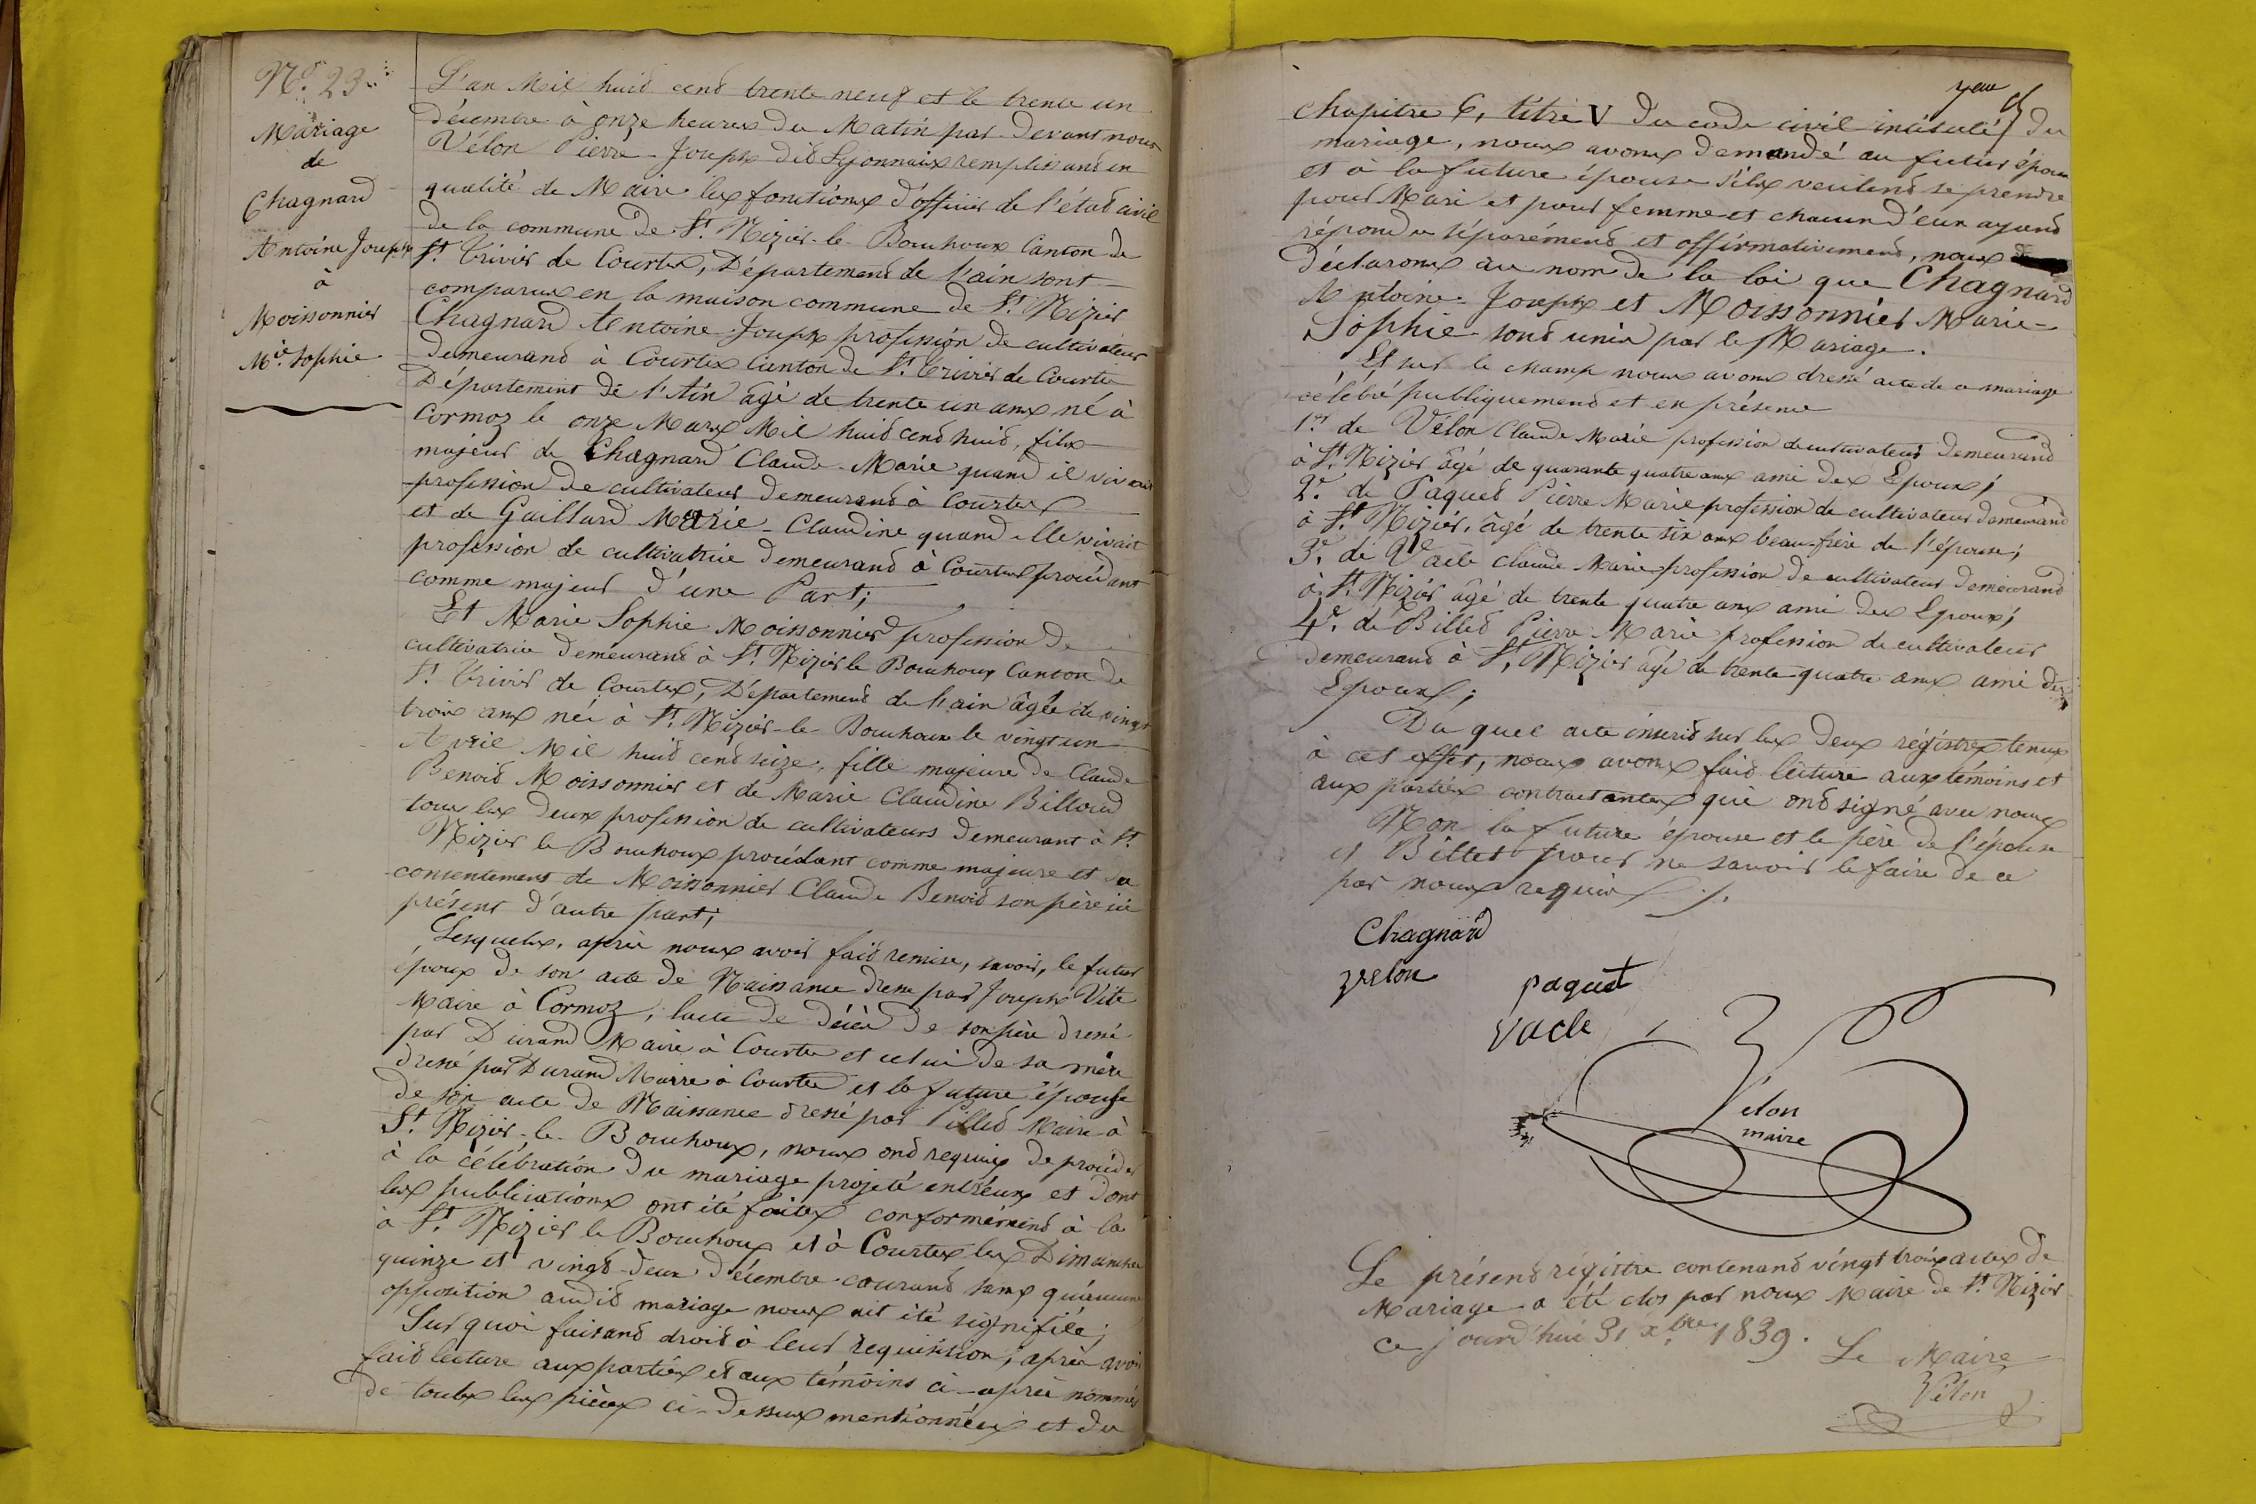 N.° 23.
Mariage
de
Chagnard
Antoine Joseph
à
Moissonnier
M.ie Sophie
L'an Mil huit cent trente neuf et le trente un
décembre à onze heures du Matin par devant nous
Vélon Pierre-Joseph dit Lyonnais remplissant en
qualité de Maire les fonctions d'officier de l'état civil
de la commune de St. Nizier-le-Bouchoux Canton de
St. Trivier de Courtes, Département de l'ain sont
comparus en la maison commune de St. Nizier
Chagnard Antoine Joseph profession de cultivateur
demeurant à Courtes Canton de St. Trivier de Courtes
Département de l'Ain âgé de trente un ans né à
Cormoz le onze Mars Mil huit cent huit, fils
majeur de Chagnard Claude-Marie quand il vivait
profession de cultivateur demeurant à Courtes
et de Gaillard Marie-Claudine quand elle vivait
profession de cultivatrice demeurant à Courtes procédant
comme majeur d'une Part;
Et Marie Sophie Moissonnier profession de
cultivatrice demeurant à St. Nizier le Bouchoux Canton de
St. Trivier de Courtes, Département de l'ain âgée de vingt
trois ans née à St. Nizier-le-Bouchoux le vingt un
Avril Mil huit cent seize, fille majeure de Claude
Benoit Moissonnier et de Marie Claudine Billoud
tous les deux profession de cultivateurs demeurant à St.
Nizier le Bouchoux procédant comme majeure et du
consentement de Moissonnier Claude Benoit son père ici
présent d'autre part;
Lesquels, après nous avoir fait remise, savoir, le futur
époux de son acte de Naissance dressé par Joseph Vite
Maire à Cormoz, l'acte de décès de son père dressé
par Durand Maire à Courtes et celui de sa mère
dressé par Durand Maire à Courtes et la future épouse
de son acte de Naissance dressé par Pillet Maire à
St. Nizier-le-Bouchoux, nous ont requis de procéder
à la célébration du mariage projeté entr'eux et dont
les publications ont été faites conformément à la
à St. Nizier le Bouchoux et à Courtes les Dimanches
quinze et vingt-deux décembre courant sans qu'aucune
opposition audit mariage nous ait été signifiée;
Sur quoi faisant droit à leur requisition, après avoir
fait lecture aux parties et aux témoins ci-après nommés
de toutes les pièces ci-dessus mentionnées et du
chapitre 6, titre V du code civil intitulé du
mariage, nous avons demandé au futur époux
et à la future épouse s'ils veulent se prendre
pour Mari et pour femme et chacun d'eux ayant
répondu séparément et affirmativement, nous
déclarons au nom de la loi que Chagnard
Antoine-Joseph et Moissonnier Marie-
Sophie sont unis par le Mariage.
Et sur le champ nous avons dressé acte de ce mariage
célébré publiquement et en présence
1.er de Vélon Claude Marie profession de cultivateur demeurant
à St. Nizier âgé de quarante quatre ans ami des Epoux;
2.e de Paquet Pierre Marie profession de cultivateur demeurant
à St. Nizier, âgé de trente six ans beau-frère de l'épouse;
3.e de Vacle Claude Marie profession de cultivateur demeurant
à St. Nizier âgé de trente quatre ans ami des Epoux;
4.e de Billet Pierre Marie profession de cultivateur
demeurant à St. Nizier âgé de trente-quatre ans ami des
Epoux;
Du quel acte inscrit sur les deux régistres tenus
à cet effet, nous avons fait lecture aux témoins et
aux parties contractantes qui ont signé avec nous
Non la future épouse et le père de l'épouse
et Billet pour ne savoir le faire de ce
par nous requis ./.
Chagnard
velon
paquet
vacle
Vélon
maire
Le présent régistre contenant vingt trois actes de
Mariage a été clos par nous Maire de St. Nizier
ce jourd'hui 31 xbre 1839. Le Maire
Vélon